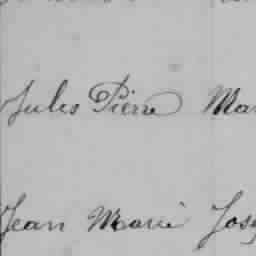 Jules Pierre Mar
Jean Marie Jos